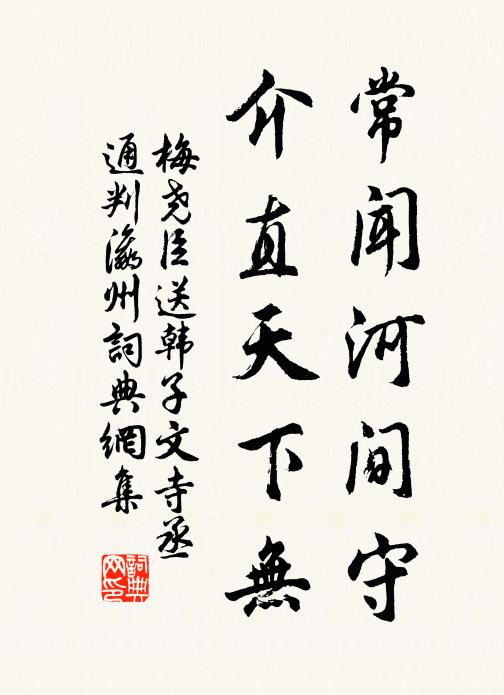 常聞河間守
介直天下無
梅尧臣送韩子文寺丞
通判瀛州詞典網集
詞典网印